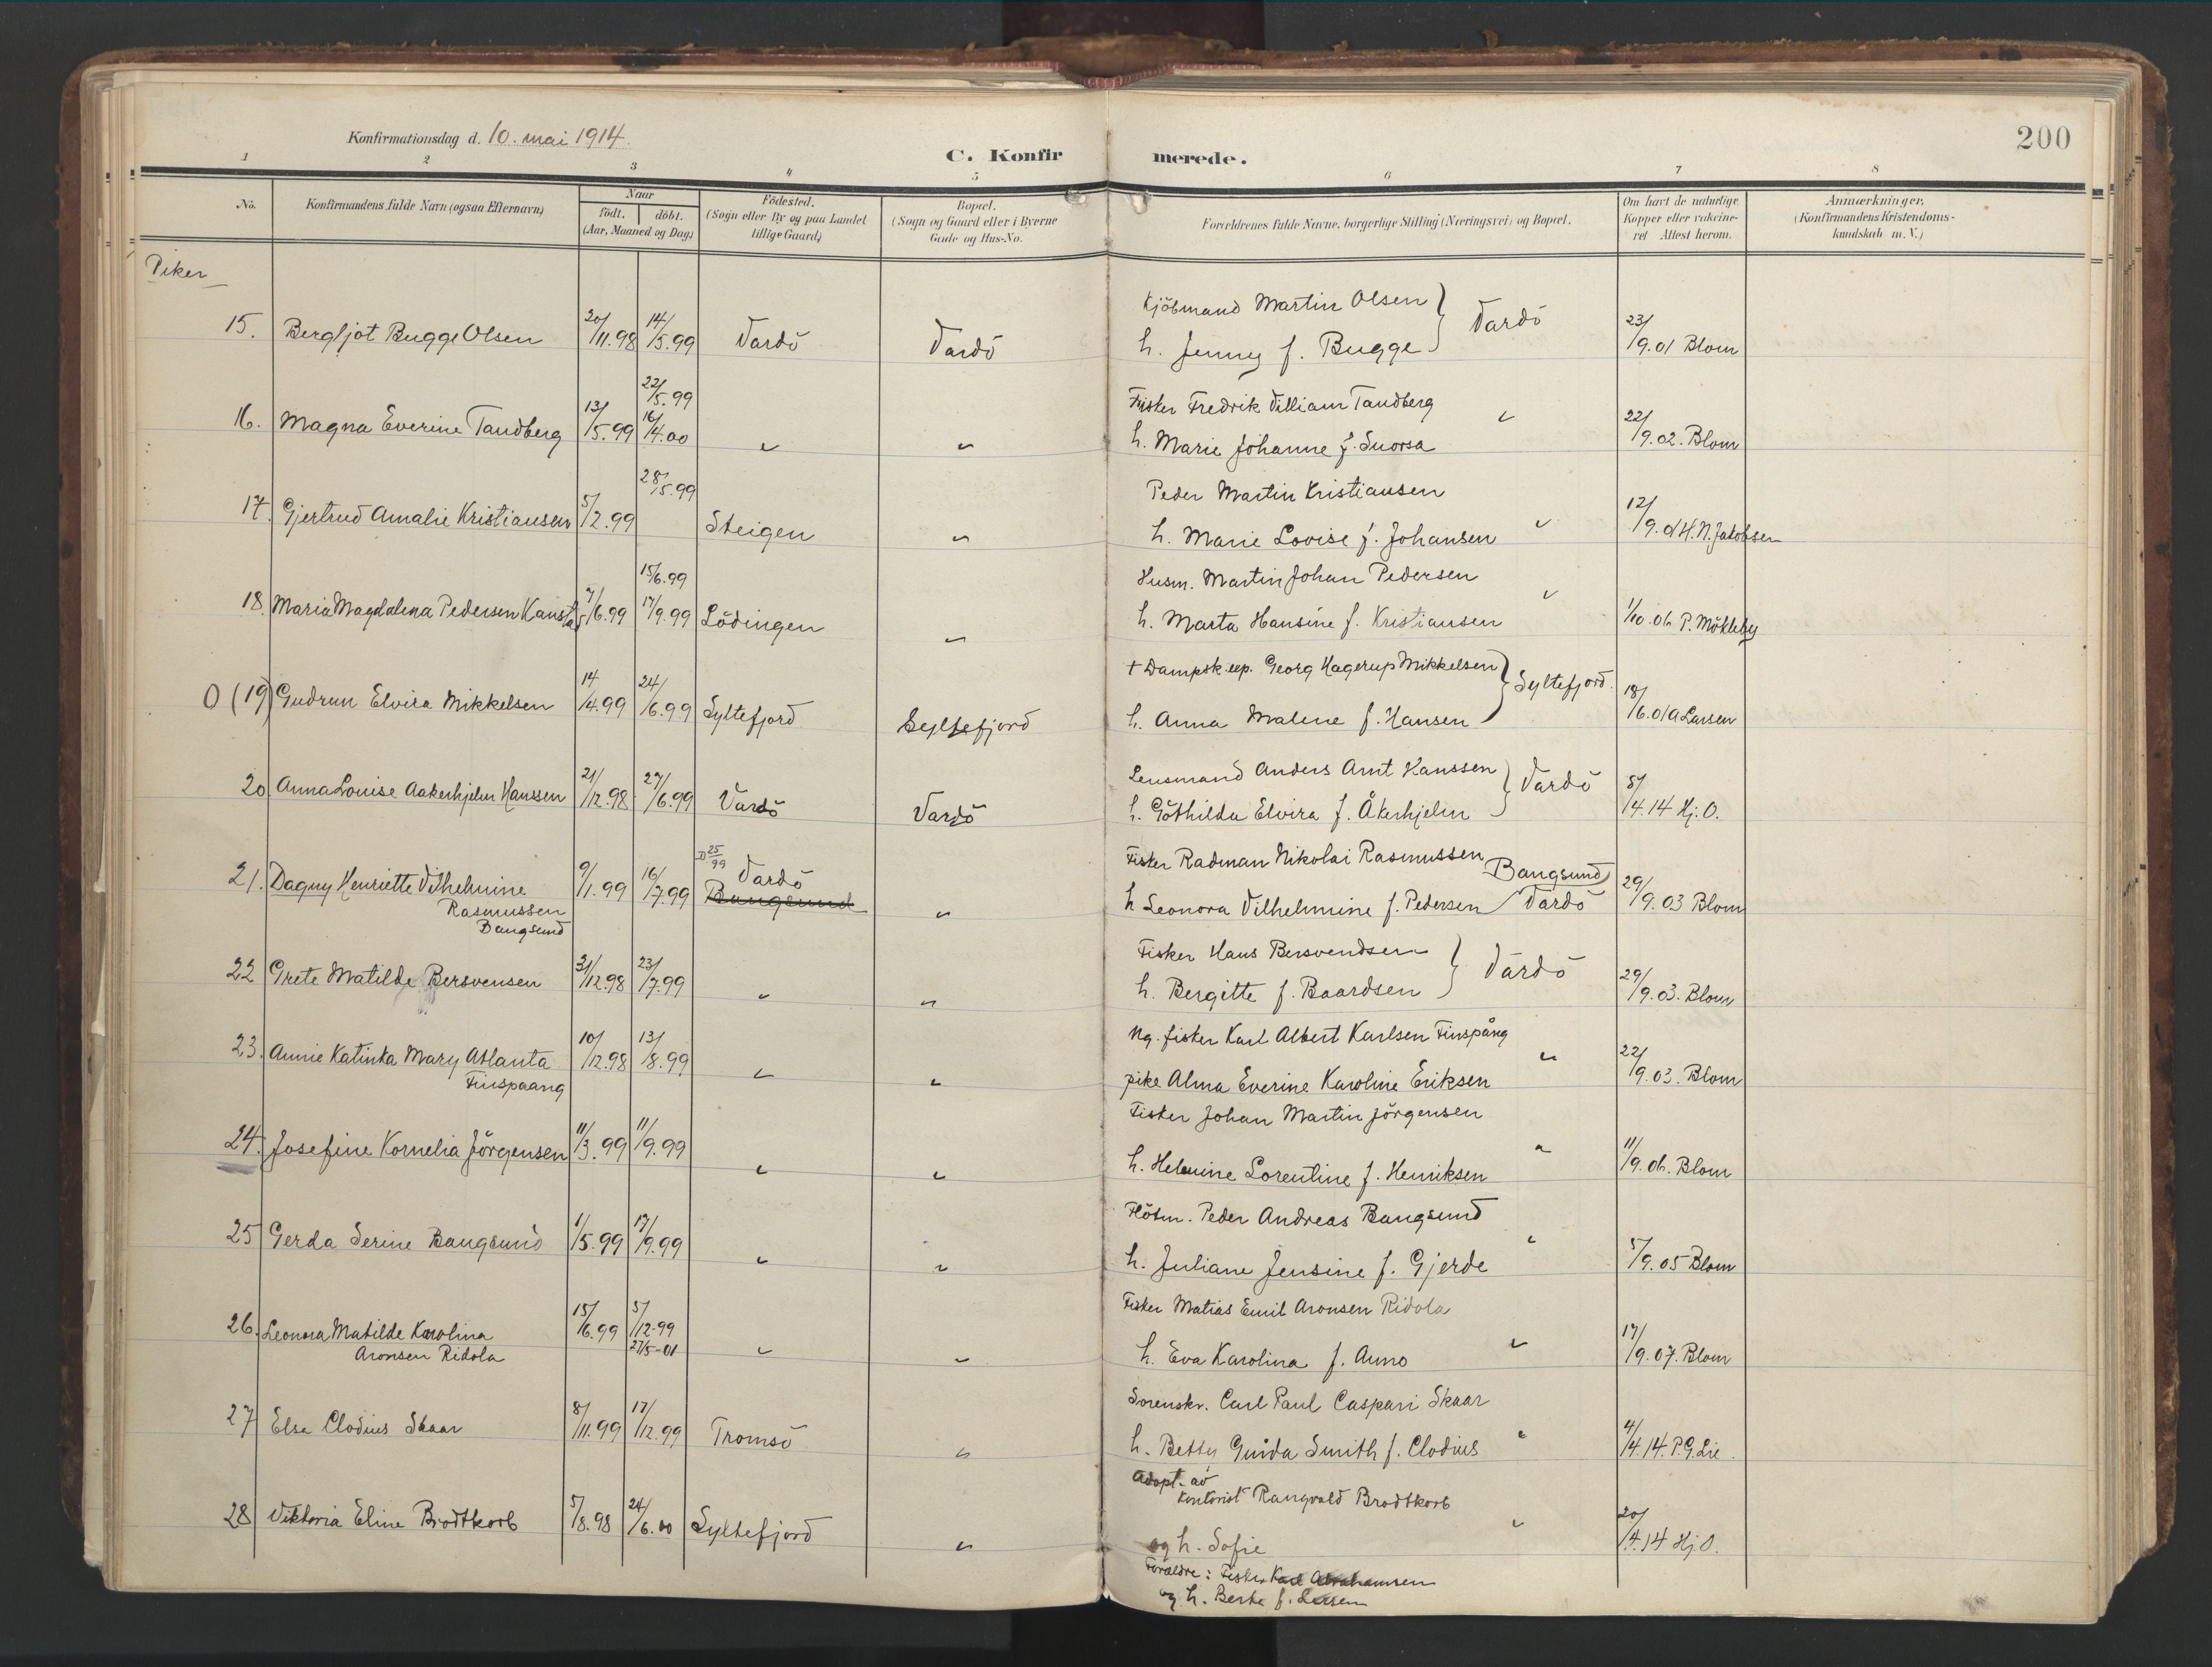 Konfirmationsdag d. 10. mai 1914.
C. Konfirmerede.
200
1 2 3 4 5 6 7 8
No.
Konfirmandens fulde Navn (ogsaa Efternavn)
Naar
födt. döbt.
(Aar, Maaned og Dag)
Födested.
(Sogn eller By og paa Landet
tillige Gaard)
Bopæl.
(Sogn og Gaard eller i Byerne
Gade og Hus-No.
Forældrenes fulde Navne, borgerlige Stilling (Næringsvei) og Bopæl.
Om havt de naturlige
Kopper eller vakcine-
ret Attest herom.
Anmærkninger.
(Konfirmandens Kristendoms-
kundskab m. V.)
Piker
Kjöbmand Martin Olsen
15. Bergljot Bugge Olsen 20/11.98 14/5.99 Vardö Vardö h. Jenny f. Bugge } Vardö 23/9.01 Blom
22/5.99 Fisker Fredrik Villiam Tandberg
16. Magna Everine Tandberg 13/5.99 16/4.00 " " h. Marie Johanne f. Snorsa " 22/9.02. Blom
28/5.99 Peder Martin Kristiansen
17. Gjertrud Amalie Kristiansen 5/2.99 Steigen " h. Marie Lovise f. Johansen " 12/9.01 H. N. Jakobsen
15/6.99 Husm. Martin Johan Pedersen
18. Maria Magdalena Pedersen Kanstad 7/6.99 17/9.99 Lödingen " h. Marta Hansine f. Kristiansen " 1/10.06 P. Mökleby
† Dampsk.exp. Georg Hagerup Mikkelsen
O (19) Gudrun Elvira Mikkelsen 14/4.99 24/6.99 Syltefjord Syltefjord h. Anna Malene f. Hansen } Syltefjord. 18/6.01 A Larsen
Lensmand Anders Arnt Hanssen
20. Anna Louise Aakerhjelm Hanssen 21/12.98 27/6.99 Vardö Vardö h. Göthilda Elvira f. Åkerhjelm } Vardö 8/4.14 Hj. O.
D 25/99 Vardö Fisker Radman Nikolai Rasmussen Bangsund
21. Dagny Henriette Vilhelmine 9/1.99 16/7.99 Bangsund " h Leonora Vilhelmine f. Pedersen Vardö 29/9.03 Blom
Rasmussen
Bangsund
Fisker Hans Bersvendsen
22 Grete Matilde Bersvensen 31/12.98 23/7.99 " " h. Bergitte f. Baardsen } Vardö 29/9.03. Blom
Ug. fisker Karl Albert Karlsen Finspång
23. Annie Katinka Mary Atlanta 10/12.98 13/8.99 " " pike Alma Everine Karoline Eriksen " 22/9.03. Blom
Finspaang
Fisker Johan Martin Jörgensen
24. Josefine Kornelia Jörgensen 11/3.99 11/9.99 " " h. Helmine Lorentine f. Henriksen " 11/9.06. Blom
Peder Andreas Bangsund
25 Gerda Serine Bangsund 1/5.99 17/9.99 " " h. Juliane Jensine f. Gjerde " 5/9.05 Blom
Fisker Matias Emil Aronsen Ridola
26. Leonora Matilde Karolina 15/6.99 3/12-99 " " h. Eva Karolina f. Anno " 17/9.07. Blom
Aronsen Ridola 27/5-01
Sorenskr. Carl Paul Caspari Skaar
27 Else Clodius Skaar 8/11.99 17/12.99 Tromsö " h. Betty Guida Smith f. Clodius " 4/4.14. P. G. Lie.
Adopt. av
kontorist Rangvald Brodtkorb
28 Viktoria Eline Brodtkorb 5/8.98 24/6.00 Syltefjord " og h. Sofie " 20/4.14 Hj. O.
Forældre: Fisker Karl Abrahamsen
og h. Berte f. Larsen